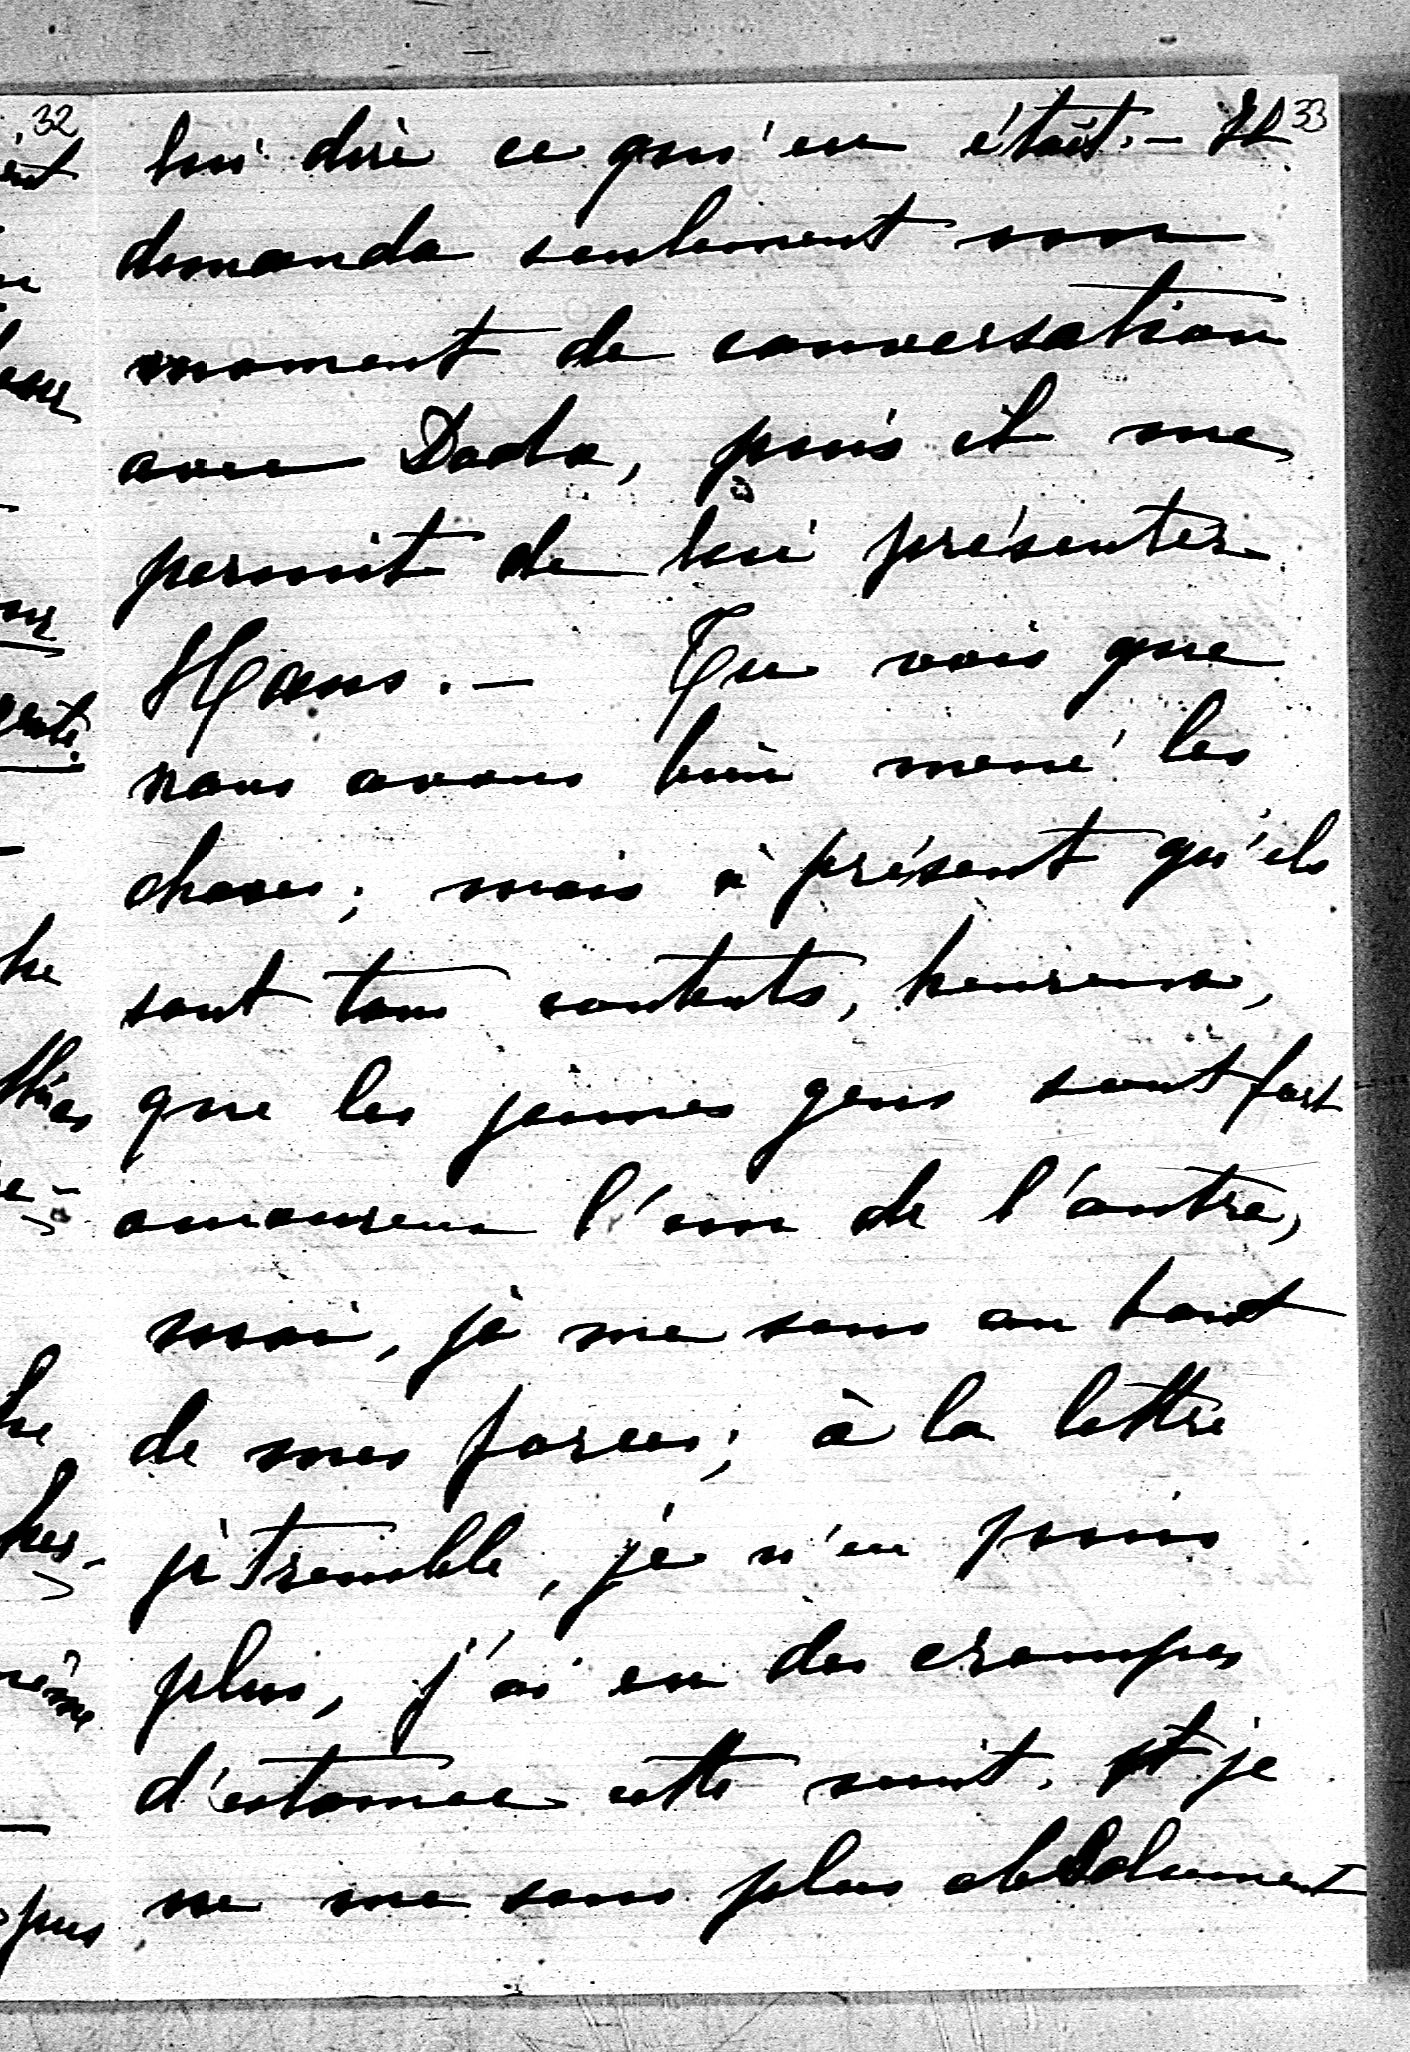 32
33
lui dire ce qu'en était. — Il
demanda seulement un
moment de conversation
avec Dada, puis il me
permit de lui présenter
Hans. — Tu vois que
nous avons bien mené les
choses; mais à présent qu'ils
sont tous contents, heureux,
que les jeunes gens sont fort
amoureux l'un de l'autre,
moi, je me sens au bout
de mes forces; à la lettre
je tremble, je n'en puis
plus, j'ai eu des crampes
d'estomac cette nuit. et je
ne me sens plus absolument